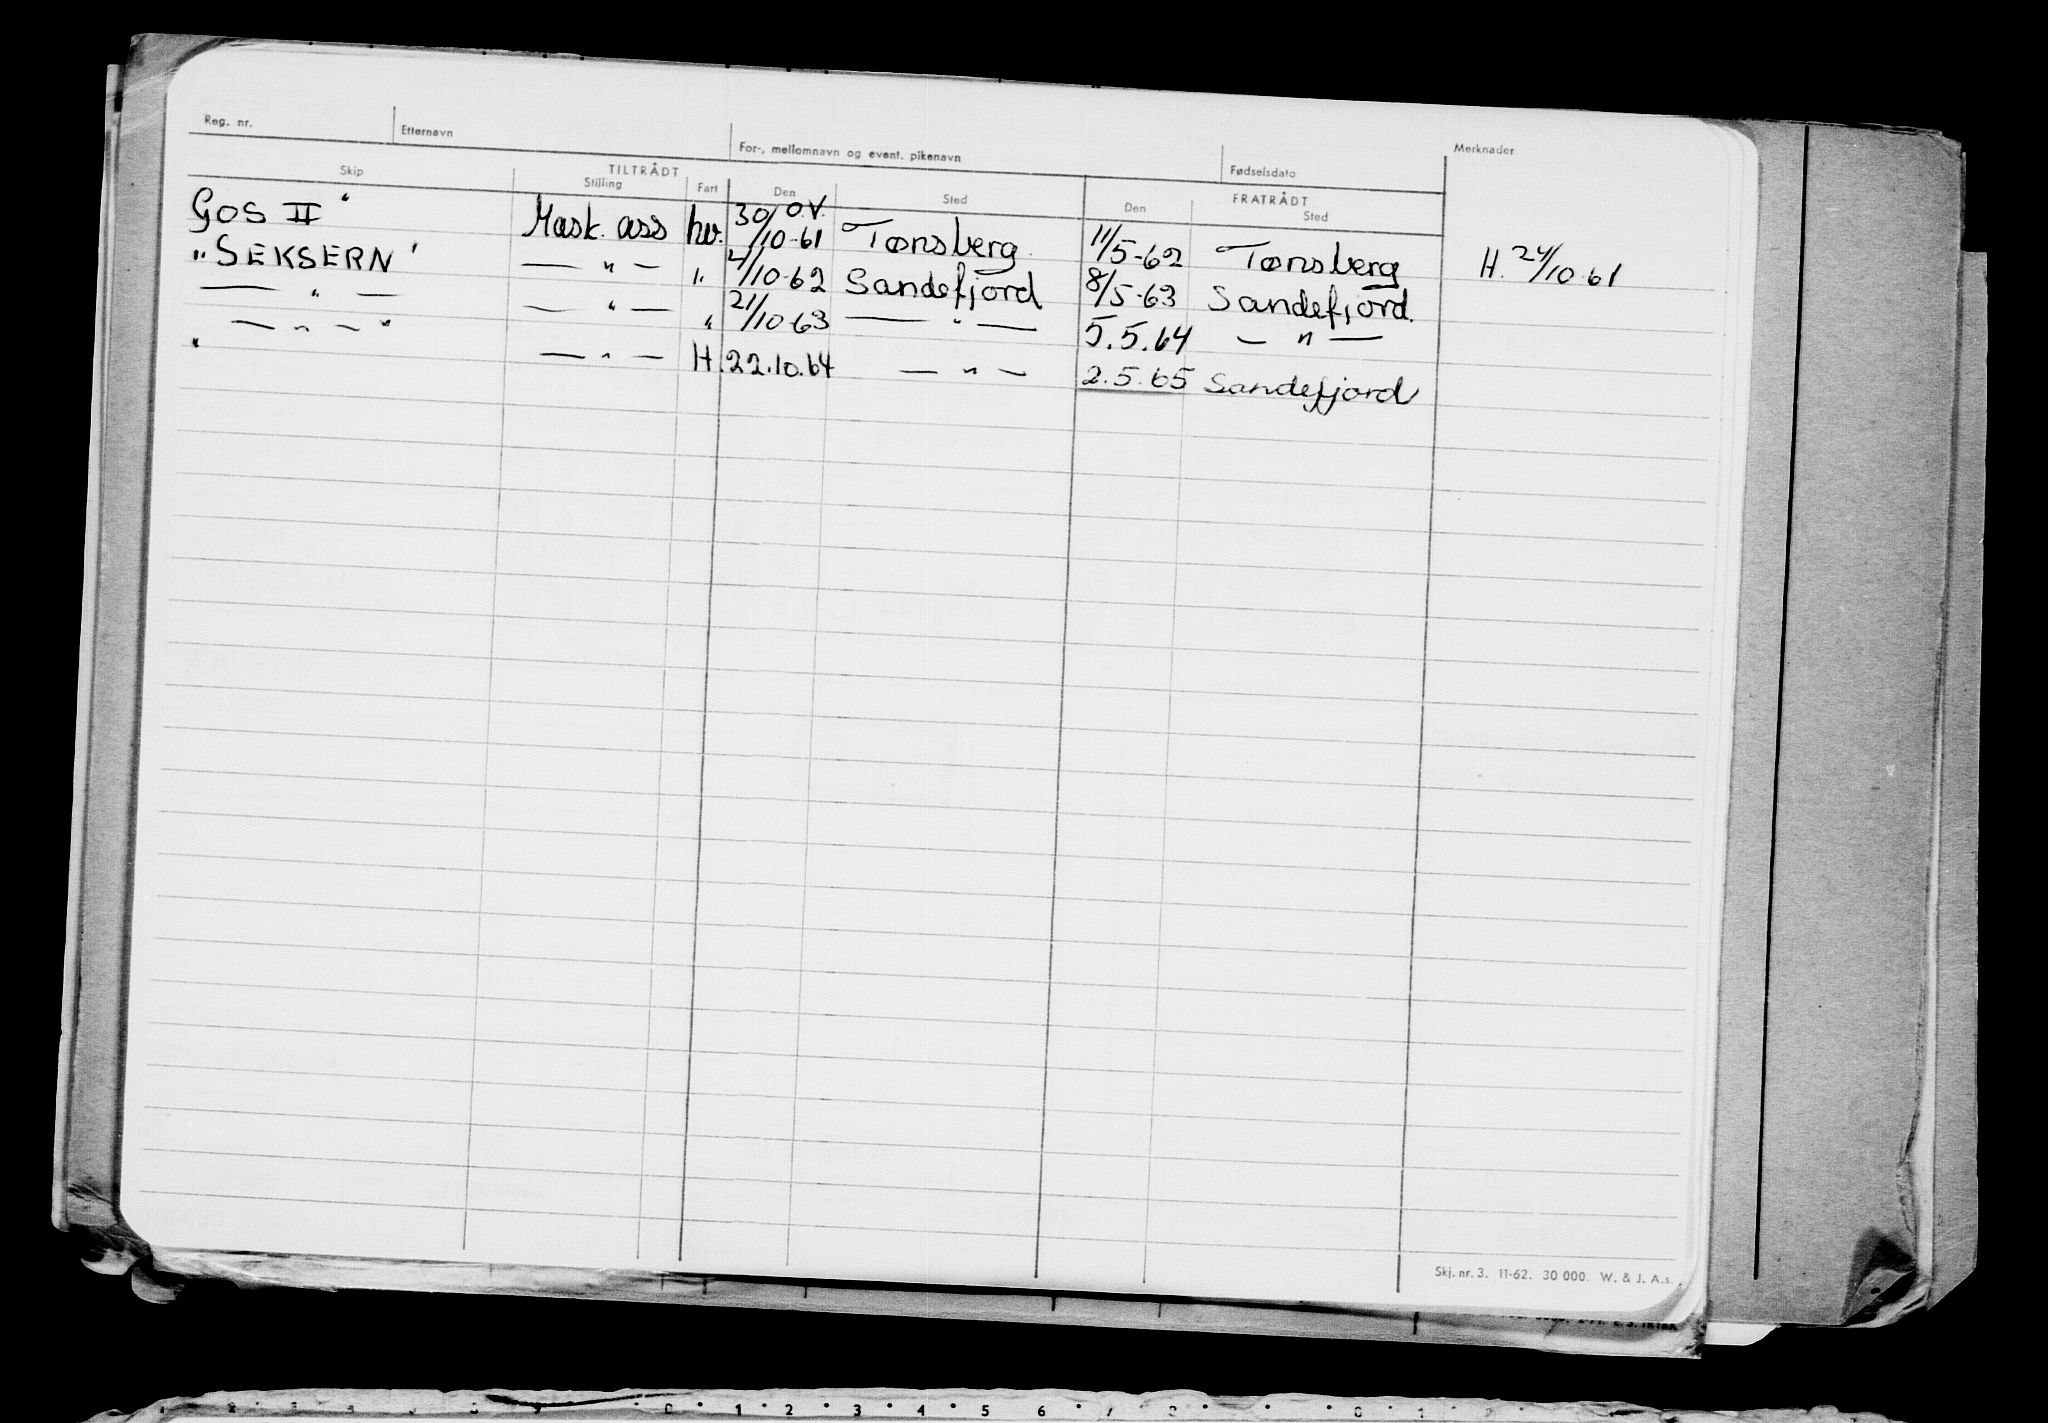 Reg. nr. Etternavn For-, mellomnavn og event. pikenavn Fødselsdato Merknader
TILTRÅDT FRATRÅDT
Skip Stilling Fart Den Sted Den Sted
GOS II" Mask. ass hv. 30/10-61 O.V. Tønsberg 11/5-62 Tønsberg H. 24/10-61
"SEKSERN' — " — " 4/10-62 Sandefjord 8/5-63 Sandefjord.
— " — — " — " 21/10-63 — " — 5.5.64 — " —
" — " — " — " — H. 22.10.64 — " — 2.5.65 Sandefjord
Skj. nr. 3. 11-62. 30 000. W. & J. A.s.